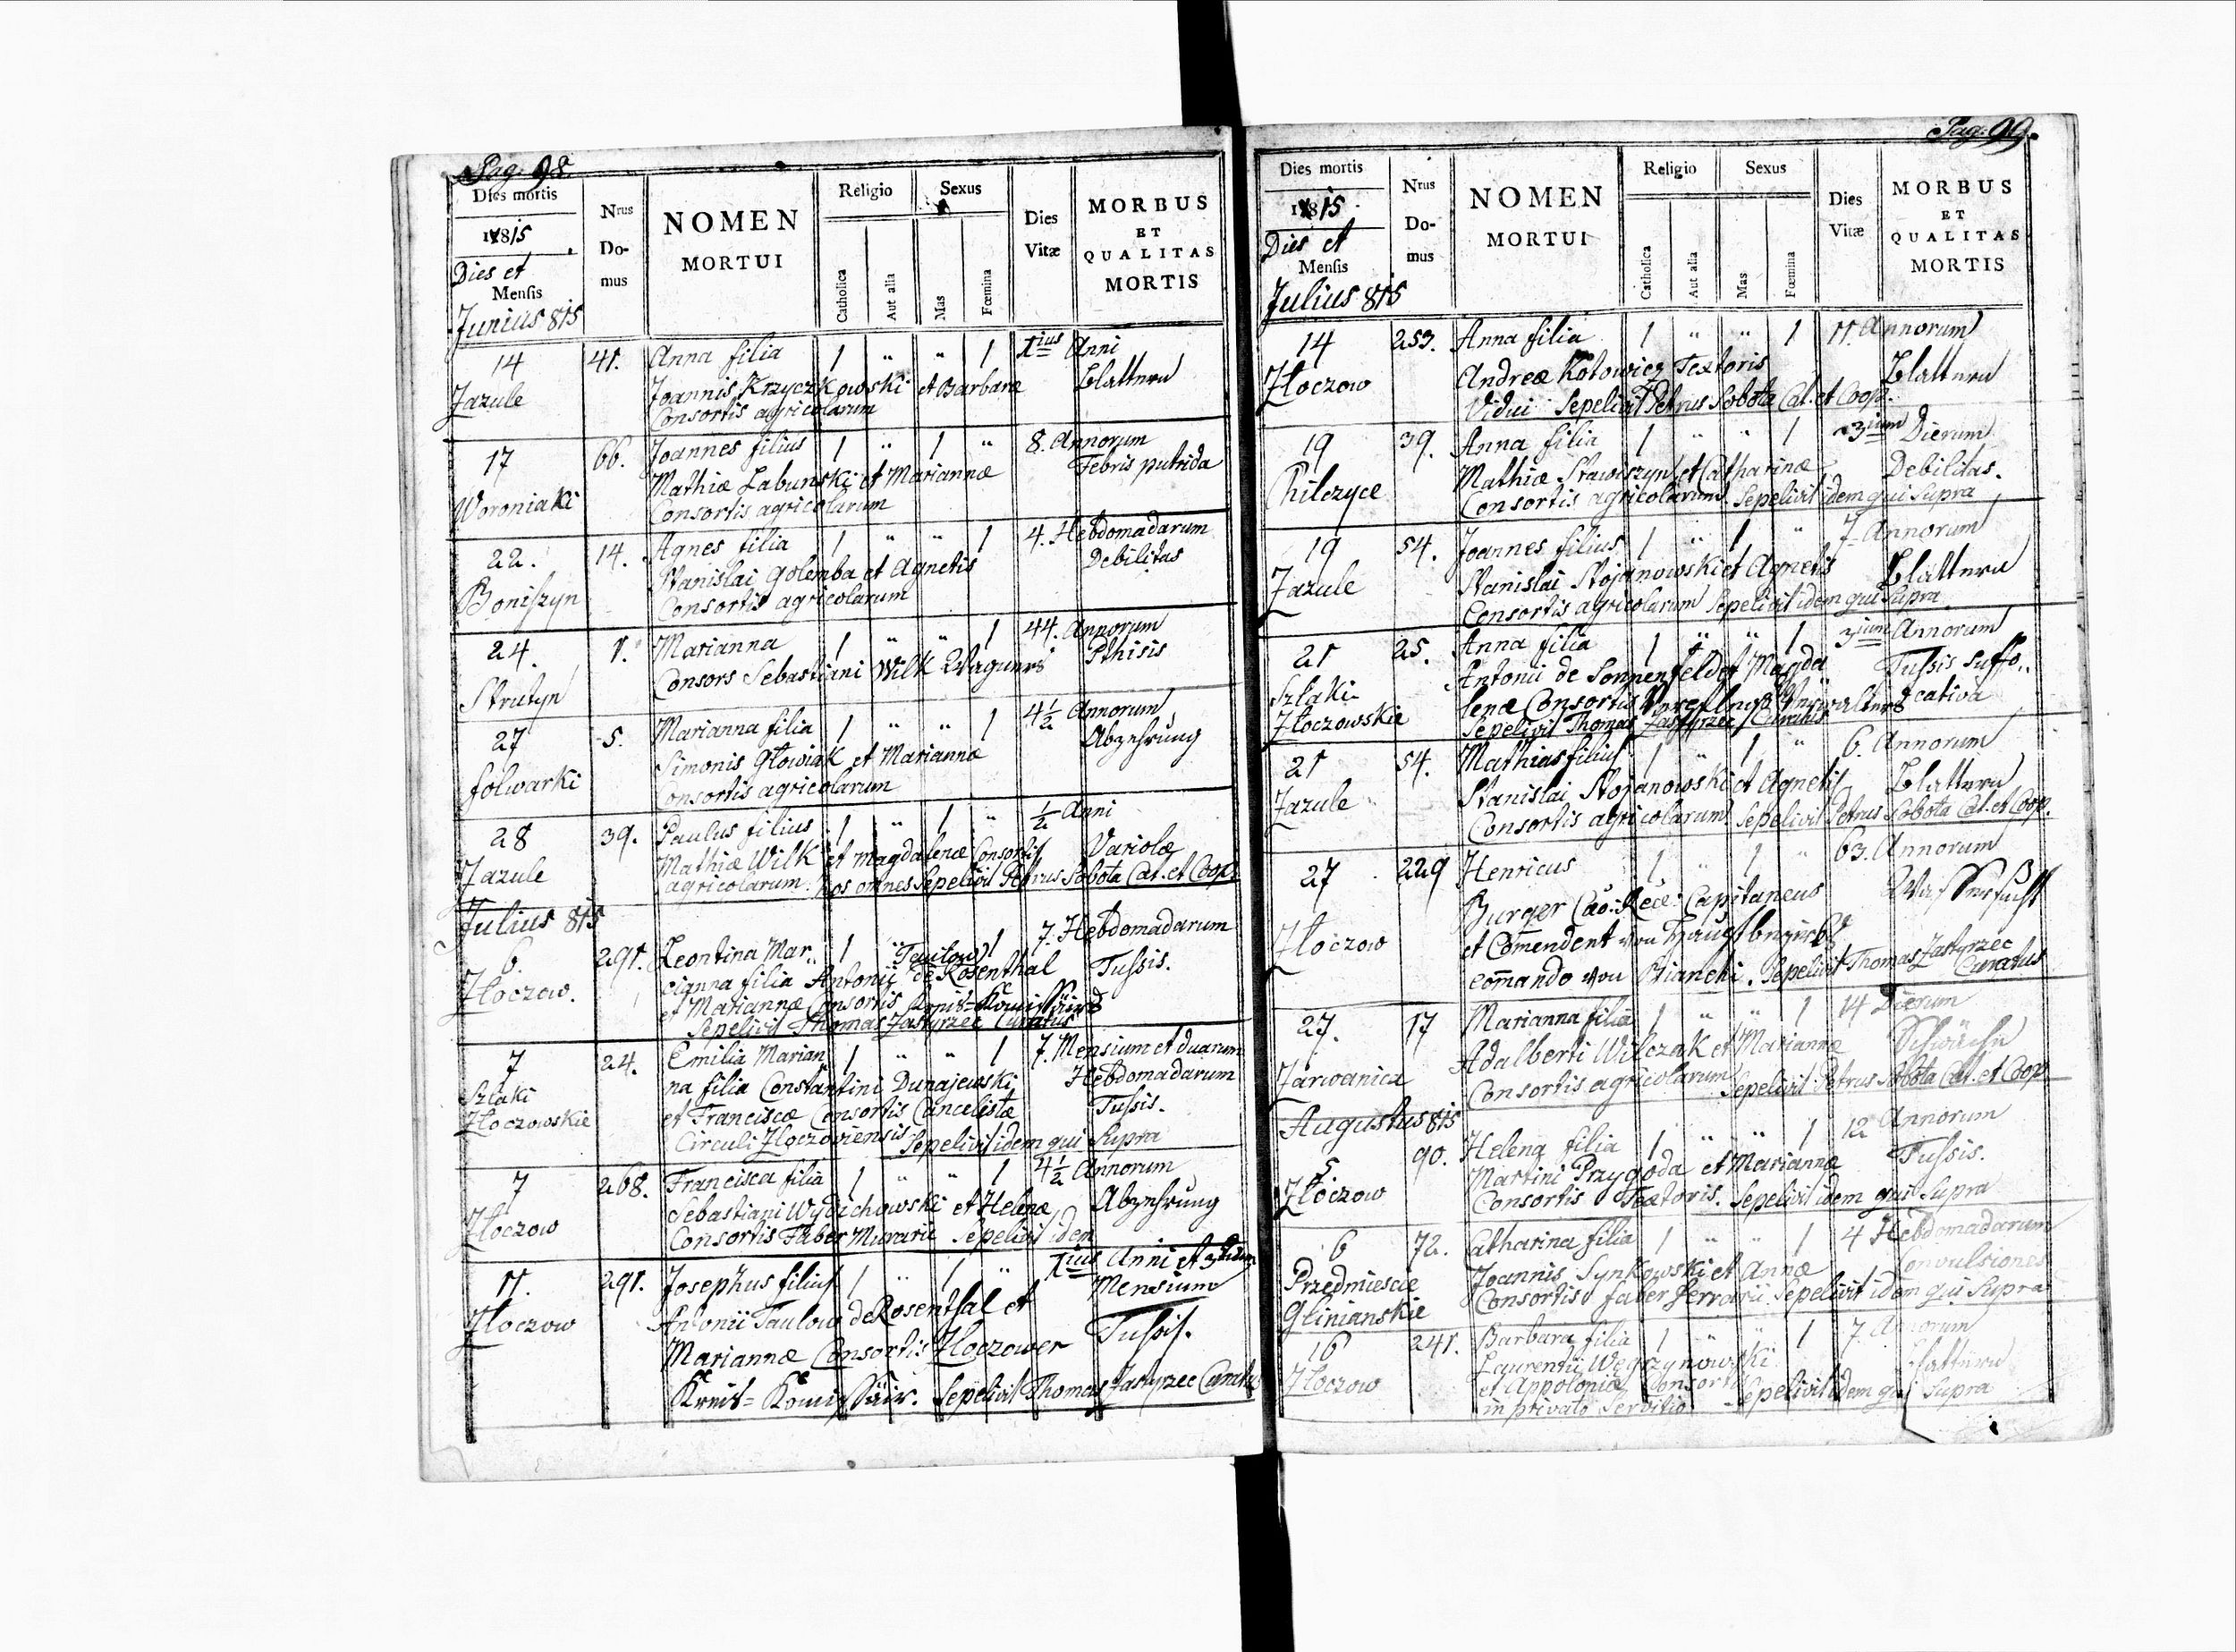 Pag: 98.
Dies mortis
1815
Dies et
Mensis
Junius 815
Nrus
Do-
mus
NOMEN
MORTUI
Religio
Catholica
Aut alia
Sexus
Mas
Fœmina
Dies
Vitæ
MORBUS
ET
QUALITAS
MORTIS
14 41. Anna filia 1 " " 1 1ius Anni
Jazule Joannis Krzyczkowski et Barbaræ Blattern
Consortis agricolarum
17 66. Joannes filius 1 " 1 " 8. Annorum
Woroniaki Mathiæ Labunski et Mariannæ Febris putrida
Consortis agricolarum
22. 14. Agnes filia 1 " " 1 4. Hebdomadarum
Boniszyn Stanislai Golemba et Agnetis Debilitas
Consortis agricolarum
24. 1. Marianna 1 " " 1 44. Annorum
Strutyn Consors Sebastiani Wilk Wagners Pthisis
27 5. Marianna filia 1 " " 1 4½ Annorum
folwarki Simonis Głowiak et Mariannæ Abzehrung
Consortis agricolarum
28 39. Paulus filius 1 " 1 " ½ Anni
Jazule Mathiæ Wilk et Magdalenæ Consortis Variolæ
agricolarum. hos omnes Sepelivit Petrus Sobota Cat. et Coop.
Julius 815
6. 291. Leontina Mar.. 1 " 1 7. Hebdomadarum
Złoczow. cianna filia Antonii de Rosenthal Tussis.
et Mariannæ Consortis Kreis-Komissairs
Sepelivit Thomas Jastyrzec Curatus
7 24. Emilia Marian 1 " " 1 7. Mensium et duarum
Szlaki na filia Constantini Dunajewski Hebdomadarum
Złoczowskie et Franciscæ Consortis Cancelistæ Tussis.
Circuli Złoczoviensis Sepelivit idem qui Supra
7 268. Francisca filia 1 " " 1 4½ Annorum
Złoczow Sebastiani Wydichowski et Helenæ Abzehrung
Consortis Faber Murarii Sepelivit idem
11. 291. Josephus filius 1 " 1 " 1ius Anni et 3
Złoczow Antonii de Rosenthal et Mensium
Mariannæ Consortis Złoczower Tussis.
Kreis=Komissair. Sepelivit Thomas Jastyrzec
Pag: 99.
Dies mortis
1815.
Dies et
Mensis
Julius 815
Nrus
Do-
mus
NOMEN
MORTUI
Religio
Catholica
Aut alia
Sexus
Mas
Fœmina
Dies
Vitæ
MORBUS
ET
QUALITAS
MORTIS
14 253. Anna filia 1 " " 1 11. Annorum
Złoczow Andreæ Kotowicz Textoris Blattern
Vidui Sepelivit Petrus Sobota Cat. et Coop.
19 39. Anna filia 1 " " 1 3ium Dierum
Chilczyce Mathiæ Stawiszyn et Catharinæ Debilitas.
Consortis agricolarum. Sepelivit idem qui Supra
19 54. Joannes filius 1 " 1 " 7. Annorum
Jazule Stanislai Stojanowski et Agnetis Blattern
Consortis agricolarum Sepelivit idem qui Supra
21 25. Anna filia 1 " " 1 3ium Annorum
Szlaki Antonii de Sonnenfeld et Magda Tussis suffo..
Złoczowskie lenæ Consortis cativa
Sepelivit Thomas Jastyrzec Curatus
21 54. Mathias filius 1 " 1 " 6. Annorum
Jazule Stanislai Stojanowski et Agnetis Blattern
Consortis agricolarum. Sepelivit Petrus Sobota Cat. et Coop.
27 229 Henricus 1 " 1 " 63. Annorum
Burger Capitaneus Wassersucht
Złoczow et Comendent von
comando von Bianchi. Sepelivit Thomas Jastyrzec
Curatus
27. 17 Marianna filia 1 " " 1 14 Dierum
Zarwanica Adalberti Wilczak et Mariannæ Schwäche
Consortis agricolarum Sepelivit Petrus Sobota Cat. et Coop
Augustus 815
5 90. Helena filia 1 " " 1 12 Annorum
Złoczow Martini Przygoda et Mariannæ Tussis.
Consortis Textoris. Sepelivit idem qui Supra
6 72. Catharina filia 1 " " 1 4 Hebdomadarum
Przedmiescie Joannis Synkowski et Annæ Convulsiones
Glinianskie Consortis faber ferrarii. Sepelivit idem qui Supra
16 241. Barbara filia 1 " " 1 7. Annorum
Złoczow Laurentii Węgrzynowski Blattern
et Appolonia Consortis Sepelivit idem qui Supra
in privato Servitio